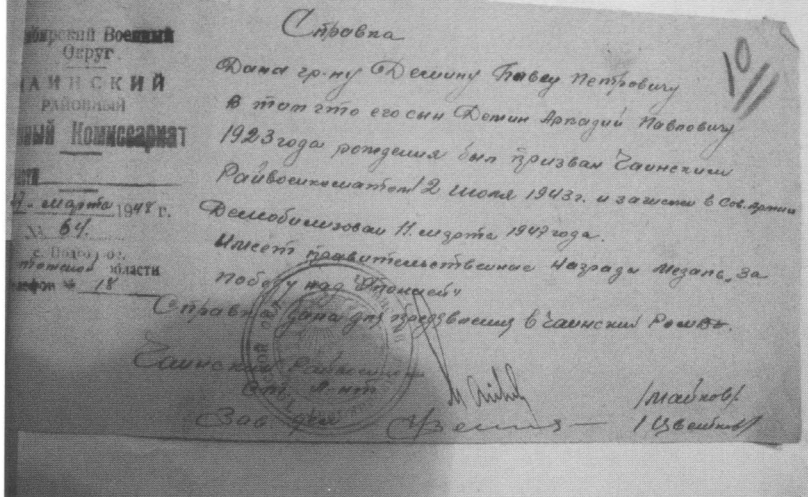 Сибирский Военный
Округ
ЧАИНСКИЙ
РАЙОННЫЙ
Военный Комиссариат
марта 1948 г.
№ 64.
с. Подгорное
Томской области
Телефон № 18
Справка
10/11
Дана гр-ну Демину Павлу Петровичу
в том что его сын Демин Аркадий Павлович
1923 года рождения был призван Чаинским
Райвоенкоматом 2 июля 1943 г. и зачислен в Сов. Армию
Демобилизован 11 марта 1947 года.
Имеет правительственные награды медаль „За
победу над Японией“
Справка дана для предъявления в Чаинский
Чаинский Райвоенком
ст. л-нт
/Майков/
Зав. дел
/Цветков/